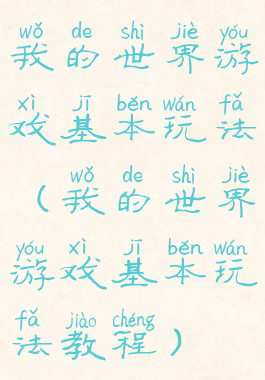 wǒ de shì jiè yóu
我的世界游
xì jī běn wán fǎ
戏基本玩法
wǒ de shì jiè
（我的世界
yóu xì jī běn wán
游戏基本玩
fǎ jiào chéng
法教程）